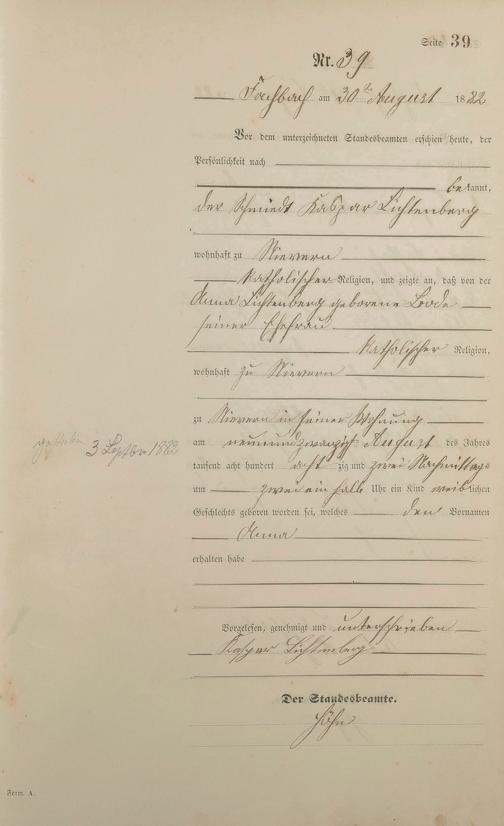 Seite 39
Nr. 39
Fachbach am 30ten August 1882
Vor dem unterzeichneten Standesbeamten erschien heute, der
Persönlichkeit nach
bekannt,
der Schmied Kaspar Lichtenberg
wohnhaft zu Nievern
katholischer Religion, und zeigte an, daß von der
Anna Lichtenberg geborene Bode
seiner Ehefrau
katholischer Religion,
wohnhaft zu Nievern
zu Nievern in seiner Wohnung
am neunundzwanzigst August des Jahres
tausend acht hundert achtzig und zwei Nachmittags
um zwei ein halb Uhr ein Kind weiblichen
Geschlechts geboren worden sei, welches den Vornamen
Anna
erhalten habe
gestorben 3 Septbr 1882
Vorgelesen, genehmigt und unterschrieben
Kaspar Lichtenberg
Der Standesbeamte.
Höhn
Form. A.